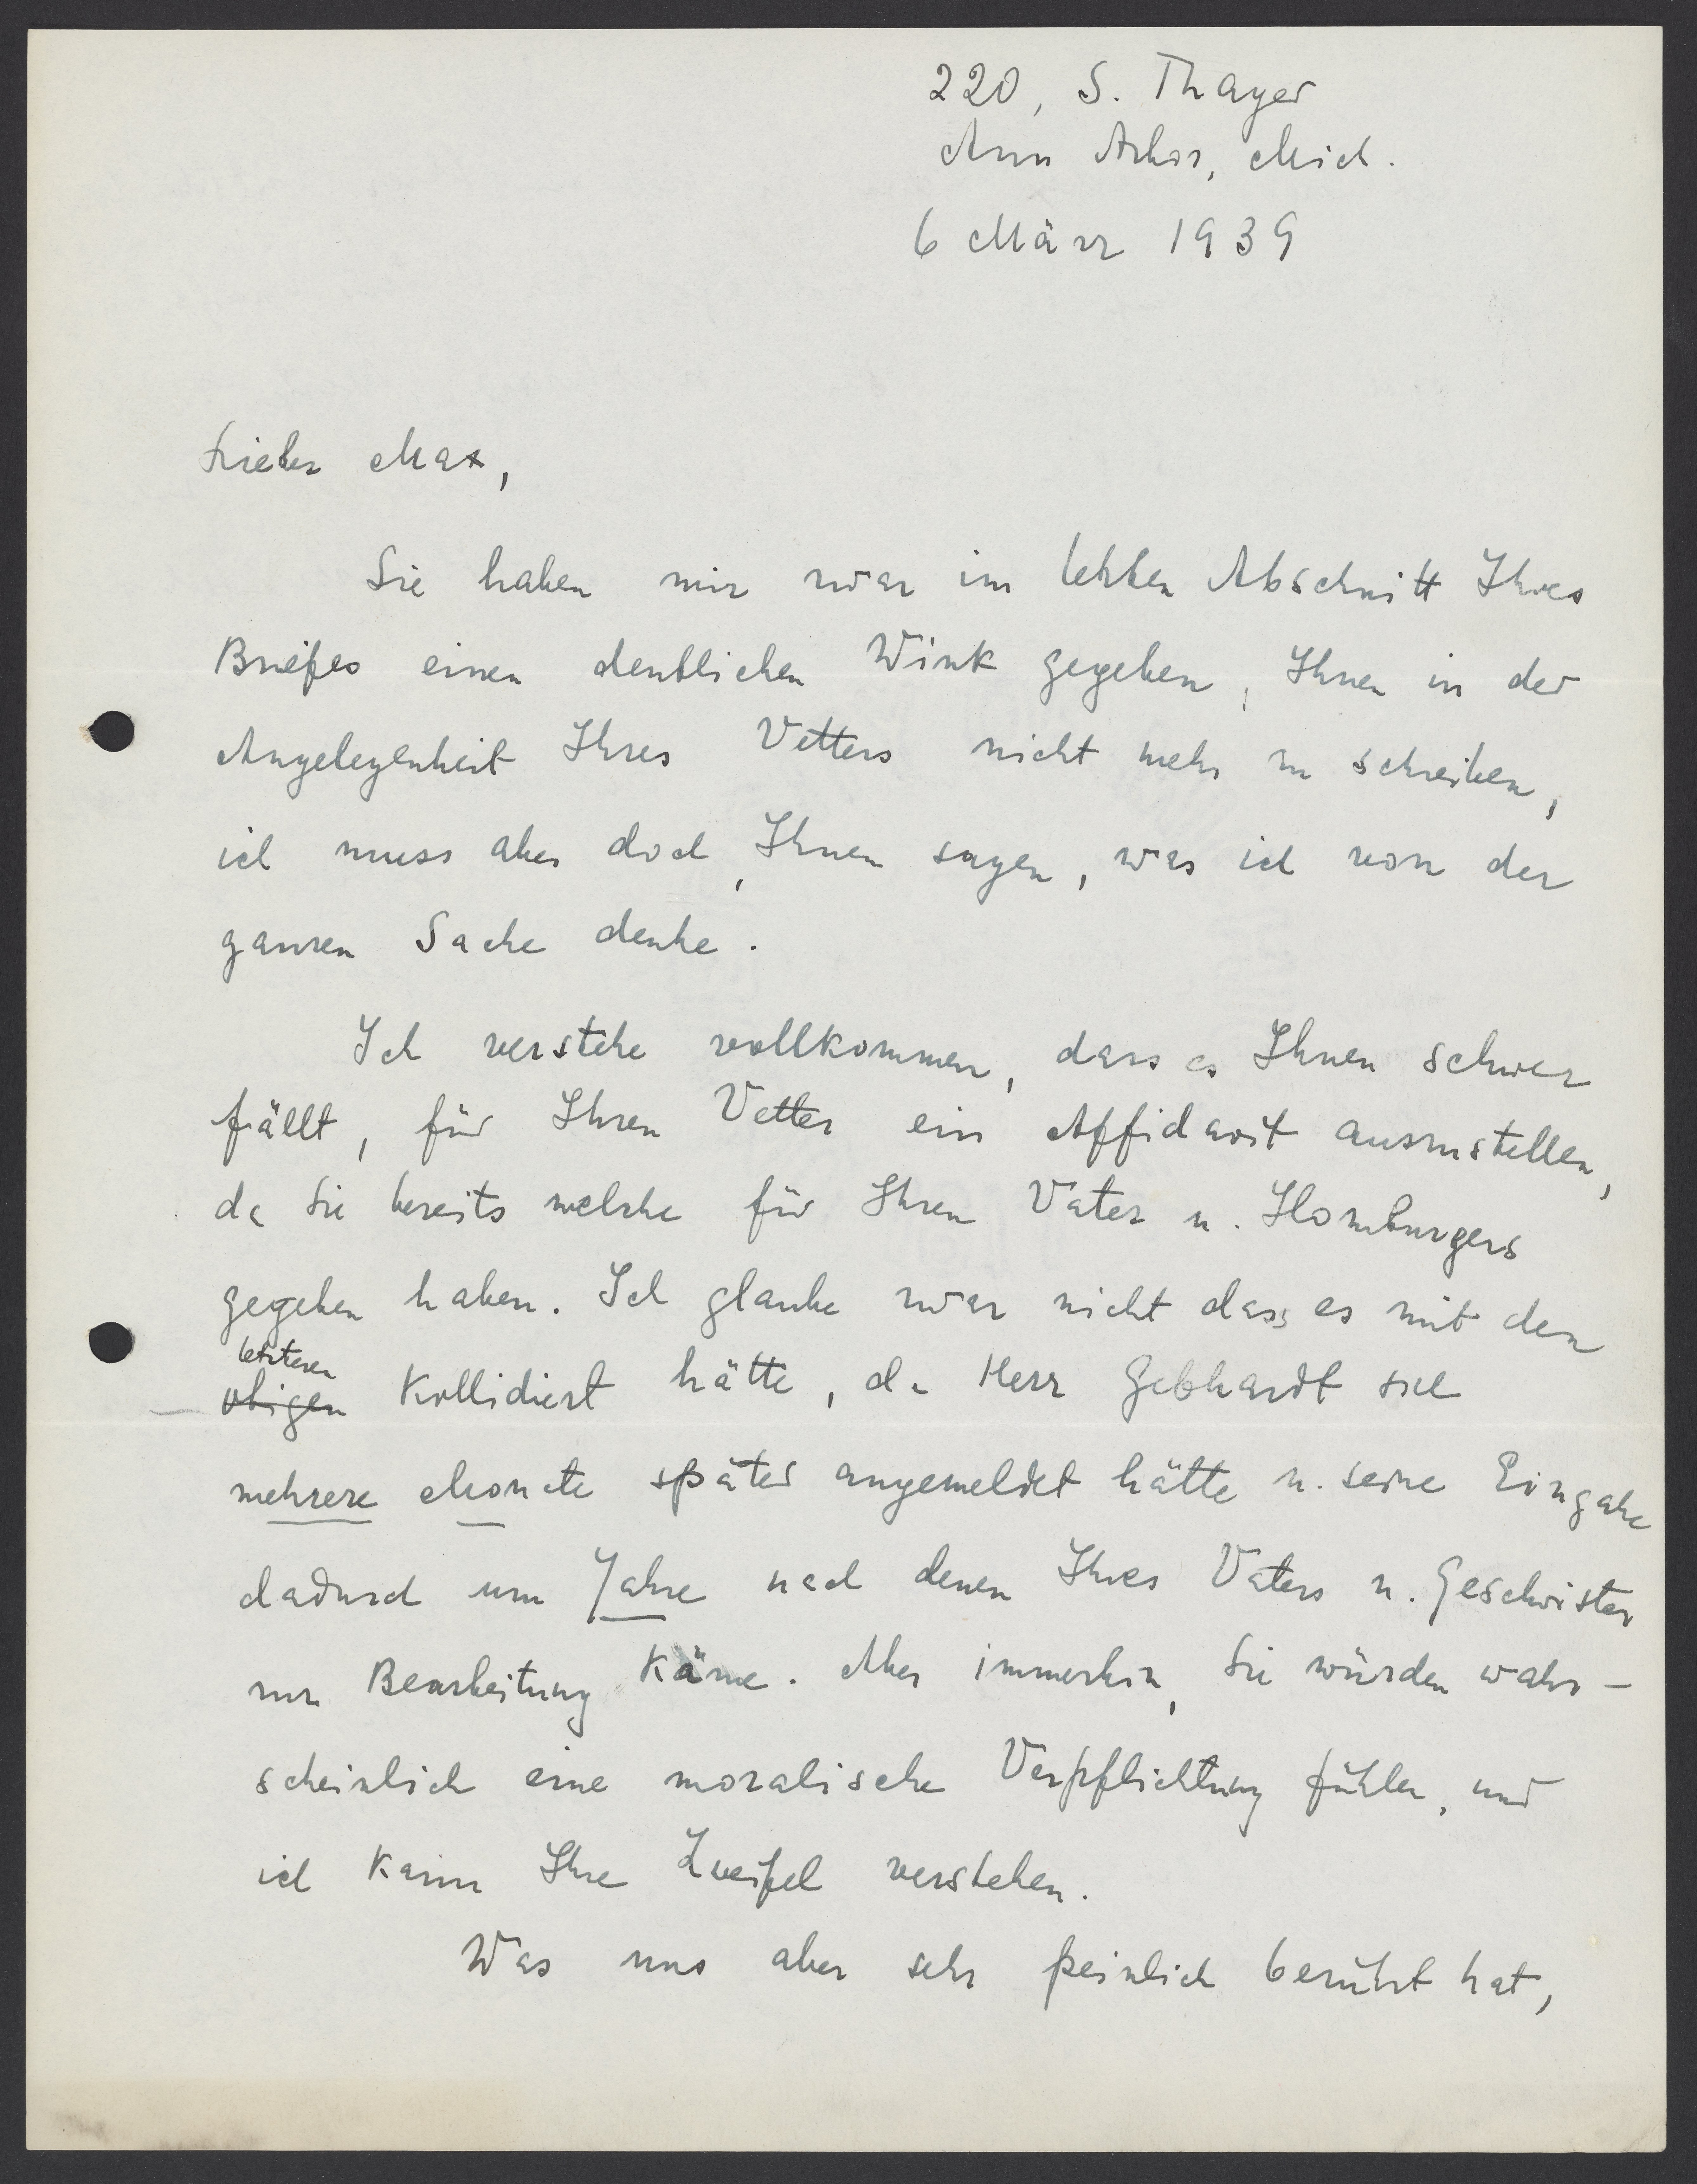 220, S. Thayer
Ann Arbor, Mich.
6 März 1939
Lieber Max,
Sie haben mir zwar im letzten Abschnitt Ihres
Briefes einen deutlichen Wink gegeben, Ihnen in der
Angelegenheit Ihres Vetters nicht mehr zu schreiben,
ich muss aber doch, Ihnen sagen, was ich von der
ganzen Sache denke.
Ich verstehe vollkommen, dass es Ihnen schwer
fällt, für Ihren Vetter ein Affidavit auszustellen,
da Sie bereits welche für Ihren Vater u. Homburgers
gegeben haben. Ich glaube zwar nicht dass es mit den
letzteren
obigen Kollidiert hätte, da Herr Gebhardt sich
mehrere Monate später angemeldet hätte u. seine Eingabe
dadurch um Jahre nach denen Ihres Vaters u. Geschwister
zur Bearbeitung Käme. Aber immerhin, Sie würden wahr-
scheinlich eine moralische Verpflichtung fühlen, und
ich Kann Ihre Zweifel verstehen.
Was uns aber sehr peinlich berührt hat,